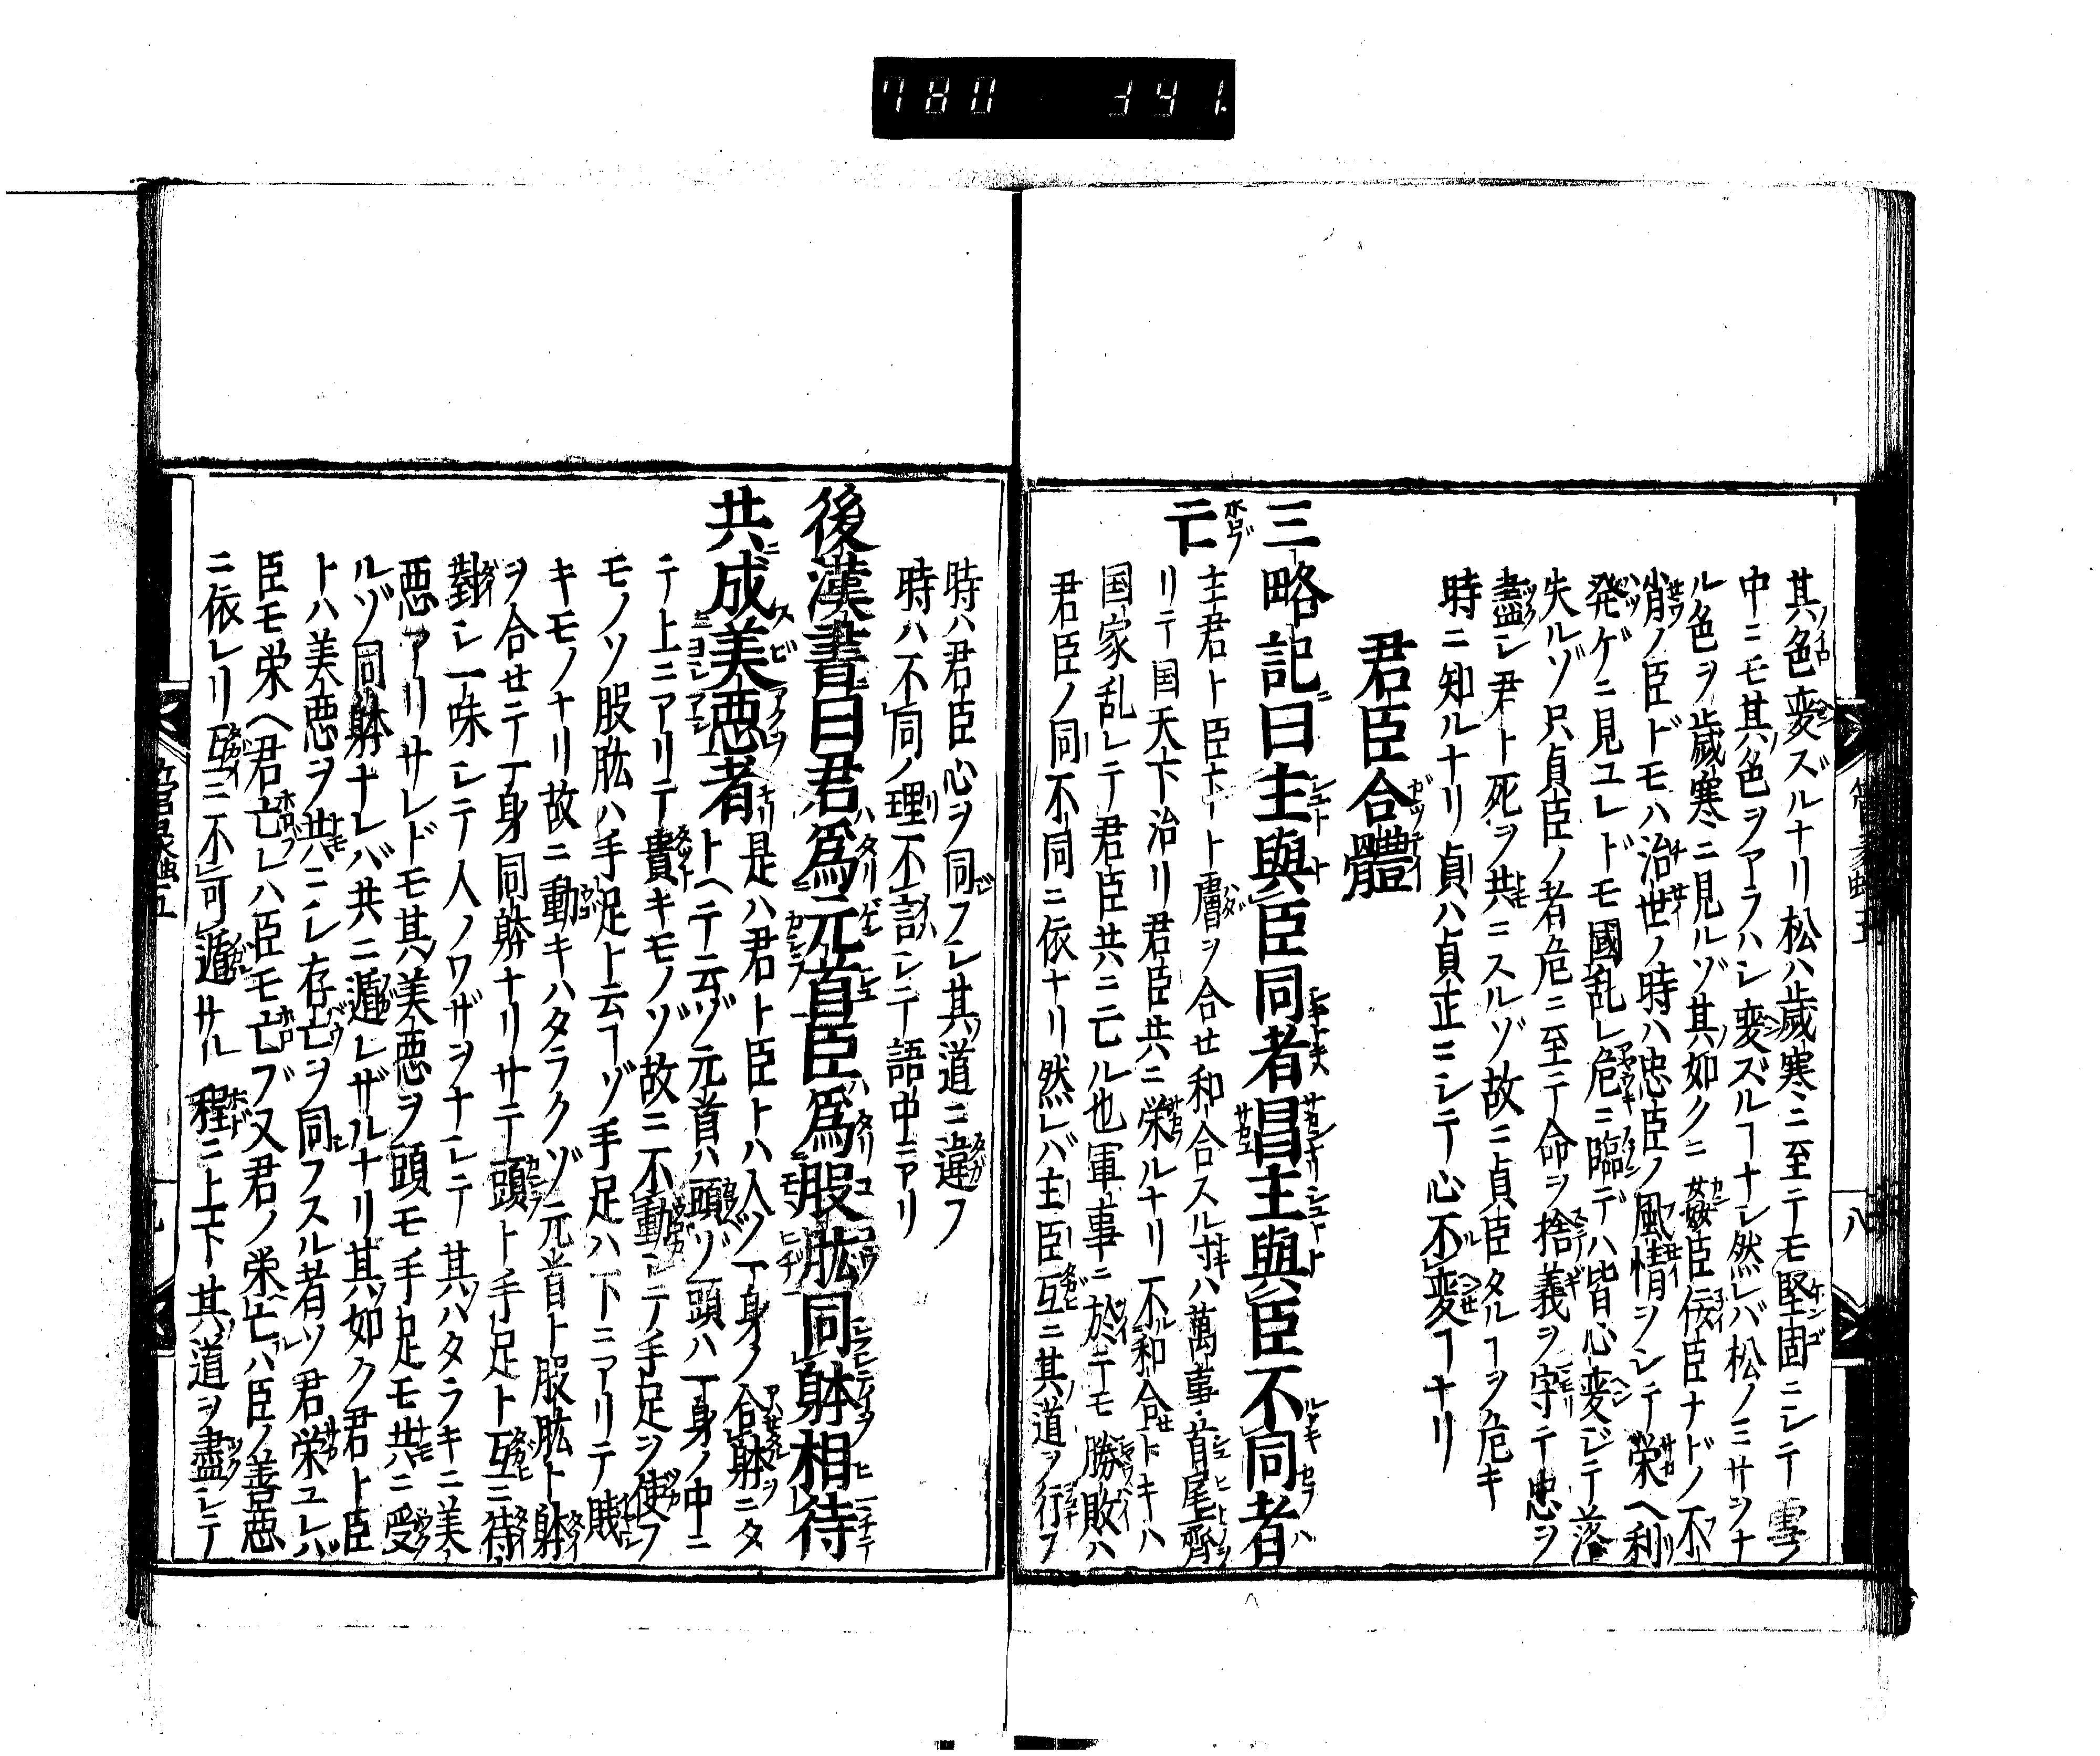 其色変ズルナリ松ハ歳寒ニ至テモ堅固ニシテ雪ノ
中ニモ其色ヲアラハシ変ズルヿナシ然レバ松ノミサヲナ
ル色ヲ歳寒ニ見ルゾ其如クニ姦臣佞臣ナドノ不
肖ノ臣ドモハ治世ノ時ハ忠臣ノ風情ヲシテ栄ヘ利
発ゲニ見ユレドモ國乱レ危ニ臨デハ皆心変ジテ落
失ルゾ只貞臣ノ者危ニ至テ命ヲ捨義ヲ守テ忠ヲ
盡シ君ト死ヲ共ニスルゾ故ニ貞臣タルヿヲ危キ
時ニ知ルナリ貞ハ貞正ニシテ心不変ヿナリ
君臣合體
三略記曰主與臣同者昌主與臣不同者
亡
主君ト臣下ト膚ヲ合セ和合スル寸ハ萬事首尾齊
リテ国天下治リ君臣共ニ栄ルナリ不和合トキハ
国家乱レテ君臣共ニ亡ル也軍事ニ於テモ勝敗ハ
君臣ノ同不同ニ依ナリ然レバ主臣互ニ其道ヲ行フ
八
時ハ君臣心ヲ同フシ其道ニ違フ
時ハ不同ノ理不談シテ語中ニアリ
後漢書曰君爲元首臣爲股肱同躰相待
共成美悪者
是ハ君ト臣トハ人ノ一身ノ合躰ニタ
トヘテ云ゾ元首ハ頭ゾ頭ハ一身ノ中ニ
テ上ニアリテ貴キモノゾ故ニ不動シテ手足ヲ使フ
モノソ股肱ハ手足ト云ヿゾ手足ハ下ニアリテ賎
キモノナリ故ニ動キハタラクゾ元首ト股肱ト躰
ヲ合セテ一身同躰ナリサテ頭ト手足ト互ニ待
對シ一味シテ人ノワザヲナシテ其ハタラキニ美
悪アリサレドモ其美悪ヲ頭モ手足モ共ニ受
ルゾ同躰ナレバ共ニ遁レザルナリ其如ク君ト臣
トハ美悪ヲ共ニシ存亡ヲ同フスル者ソ君栄ユレバ
臣モ栄ヘ君亡レハ臣モ亡ブ又君ノ栄亡ハ臣ノ善悪
ニ依レリ互ニ不可遁サル程ニ上下其道ヲ盡シテ